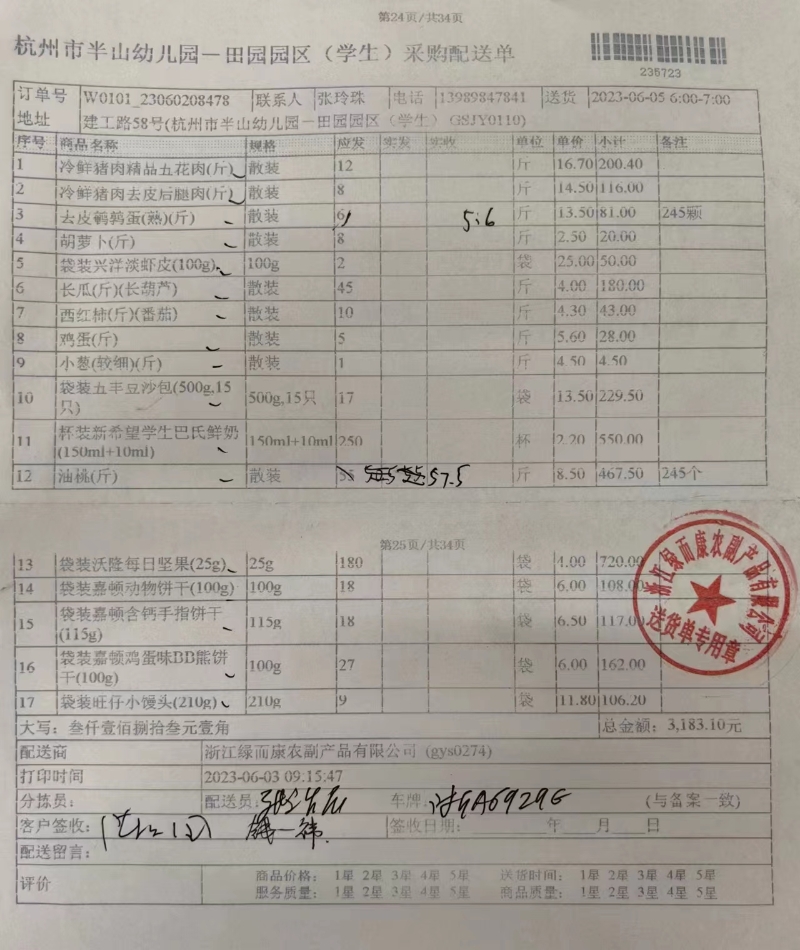 第24页/共34页
杭州市半山幼儿园一田园园区（学生）采购配送单
235723
订单号 W0101_23060208478 联系人 张玲珠 电话 13989847841 送货 2023-06-05 6:00-7:00
地址 建工路58号(杭州市半山幼儿园一田园园区（学生）GSJY0110)
序号 商品名称 规格 应发 实发 实收 单位 单价 小计 备注
1 冷鲜猪肉精品五花肉(斤) 散装 12 斤 16.70 200.40
2 冷鲜猪肉去皮后腿肉(斤) 散装 8 斤 14.50 116.00
3 去皮鹌鹑蛋(熟)(斤) 散装 6 5.6 斤 13.50 81.00 245颗
4 胡萝卜(斤) 散装 8 斤 2.50 20.00
5 袋装兴洋淡虾皮(100g) 100g 2 袋 25.00 50.00
6 长瓜(斤)(长葫芦) 散装 45 斤 4.00 180.00
7 西红柿(斤)(番茄) 散装 10 斤 4.30 43.00
8 鸡蛋(斤) 散装 5 斤 5.60 28.00
9 小葱(较细)(斤) 散装 1 斤 4.50 4.50
10 袋装五丰豆沙包(500g,15 500g,15只 17 袋 13.50 229.50
只)
11 杯装新希望学生巴氏鲜奶 150ml+10ml 250 杯 2.20 550.00
(150ml+10ml)
12 油桃(斤) 散装 55 57.5 斤 8.50 467.50 245个
第25页/共34页
13 袋装沃隆每日坚果(25g) 25g 180 袋 4.00 720.00
14 袋装嘉顿动物饼干(100g) 100g 18 袋 6.00 108.00
15 袋装嘉顿含钙手指饼干 115g 18 袋 6.50 117.00
(115g)
16 袋装嘉顿鸡蛋味BB熊饼 100g 27 袋 6.00 162.00
干(100g)
17 袋装旺仔小馒头(210g) 210g 9 袋 11.80 106.20
浙江绿而康农副产品有限公司
送货单专用章
大写：叁仟壹佰捌拾叁元壹角 总金额：3,183.10元
配送商 浙江绿而康农副产品有限公司 (gys0274)
打印时间 2023-06-03 09:15:47
分拣员： 配送员： 车牌： A6929G (与备案一致)
客户签收： 签收日期： 年 月 日
配送留言：
评价 商品价格： 1星 2星 3星 4星 5星 送货时间： 1星 2星 3星 4星 5星
服务质量： 1星 2星 3星 4星 5星 商品质量： 1星 2星 3星 4星 5星